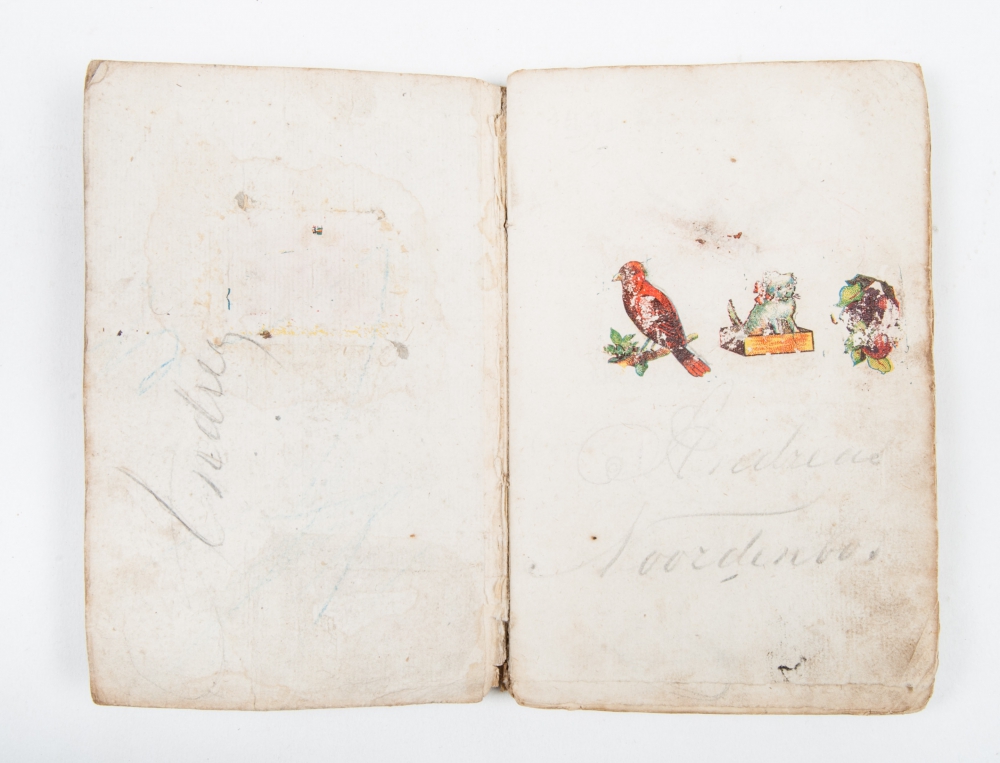 Andrey
Andreas
Noordenbos